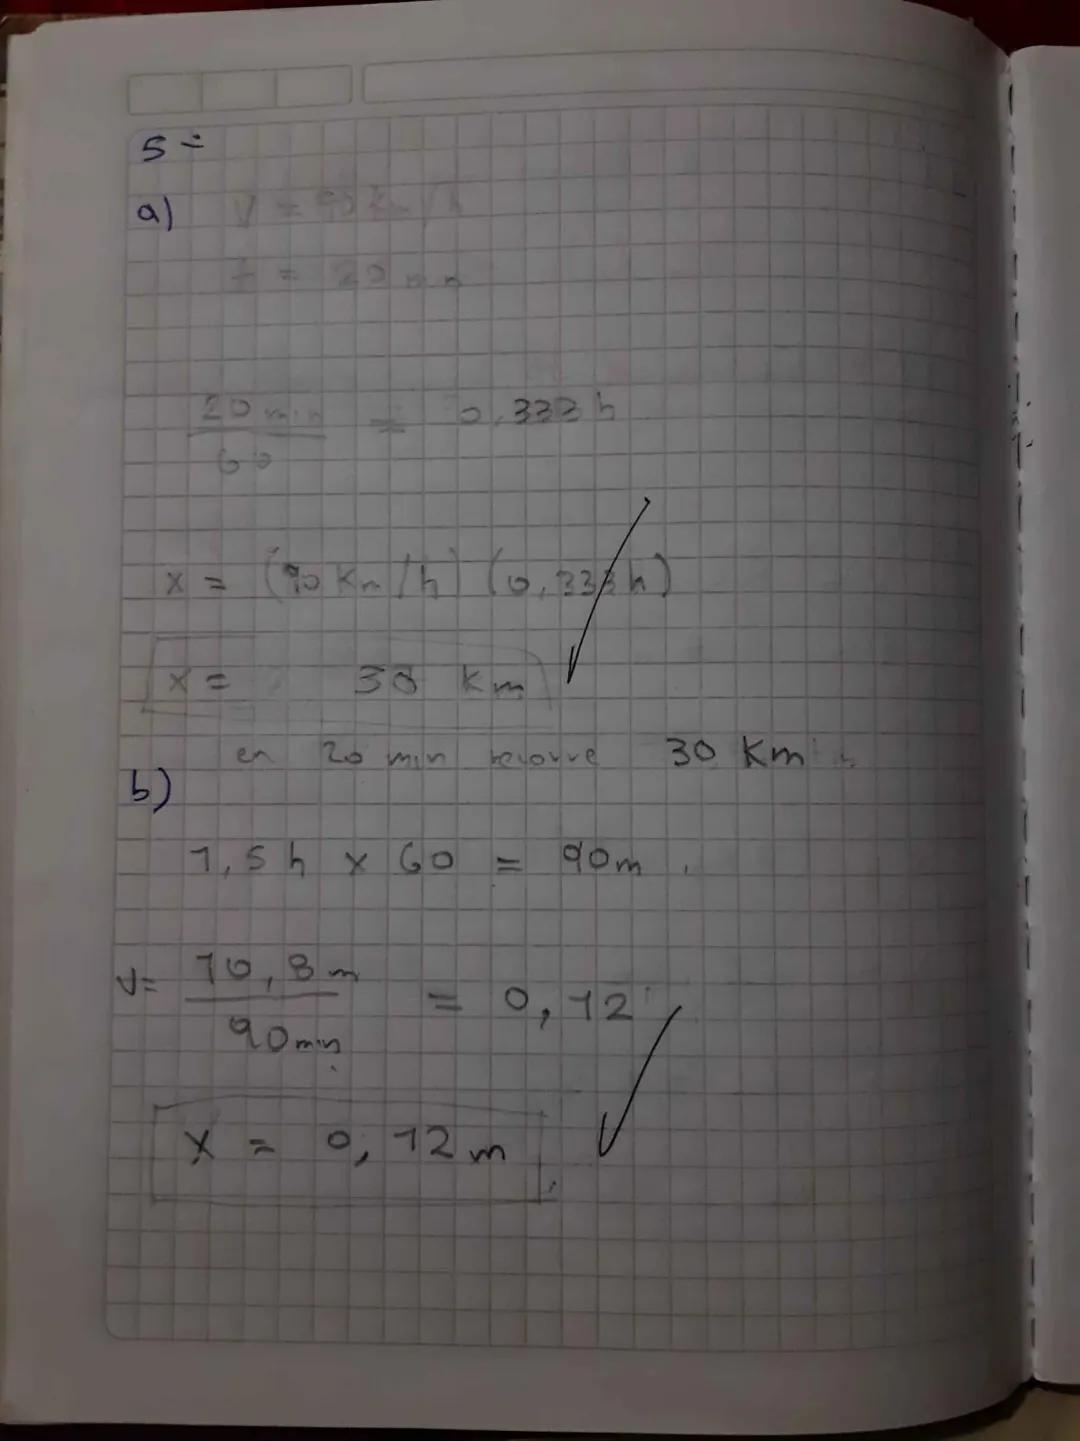 5=
a) V = 90 km/h
t = 20 min
20 min = 0,333 h
60
x = (90 Km/h) (0,333 h)
x = 30 Km
en 20 min recorre 30 Km
b)
1,5 h x 60 = 90m.
v= 10,8 m = 0,12
90 min
x = 0,12 m